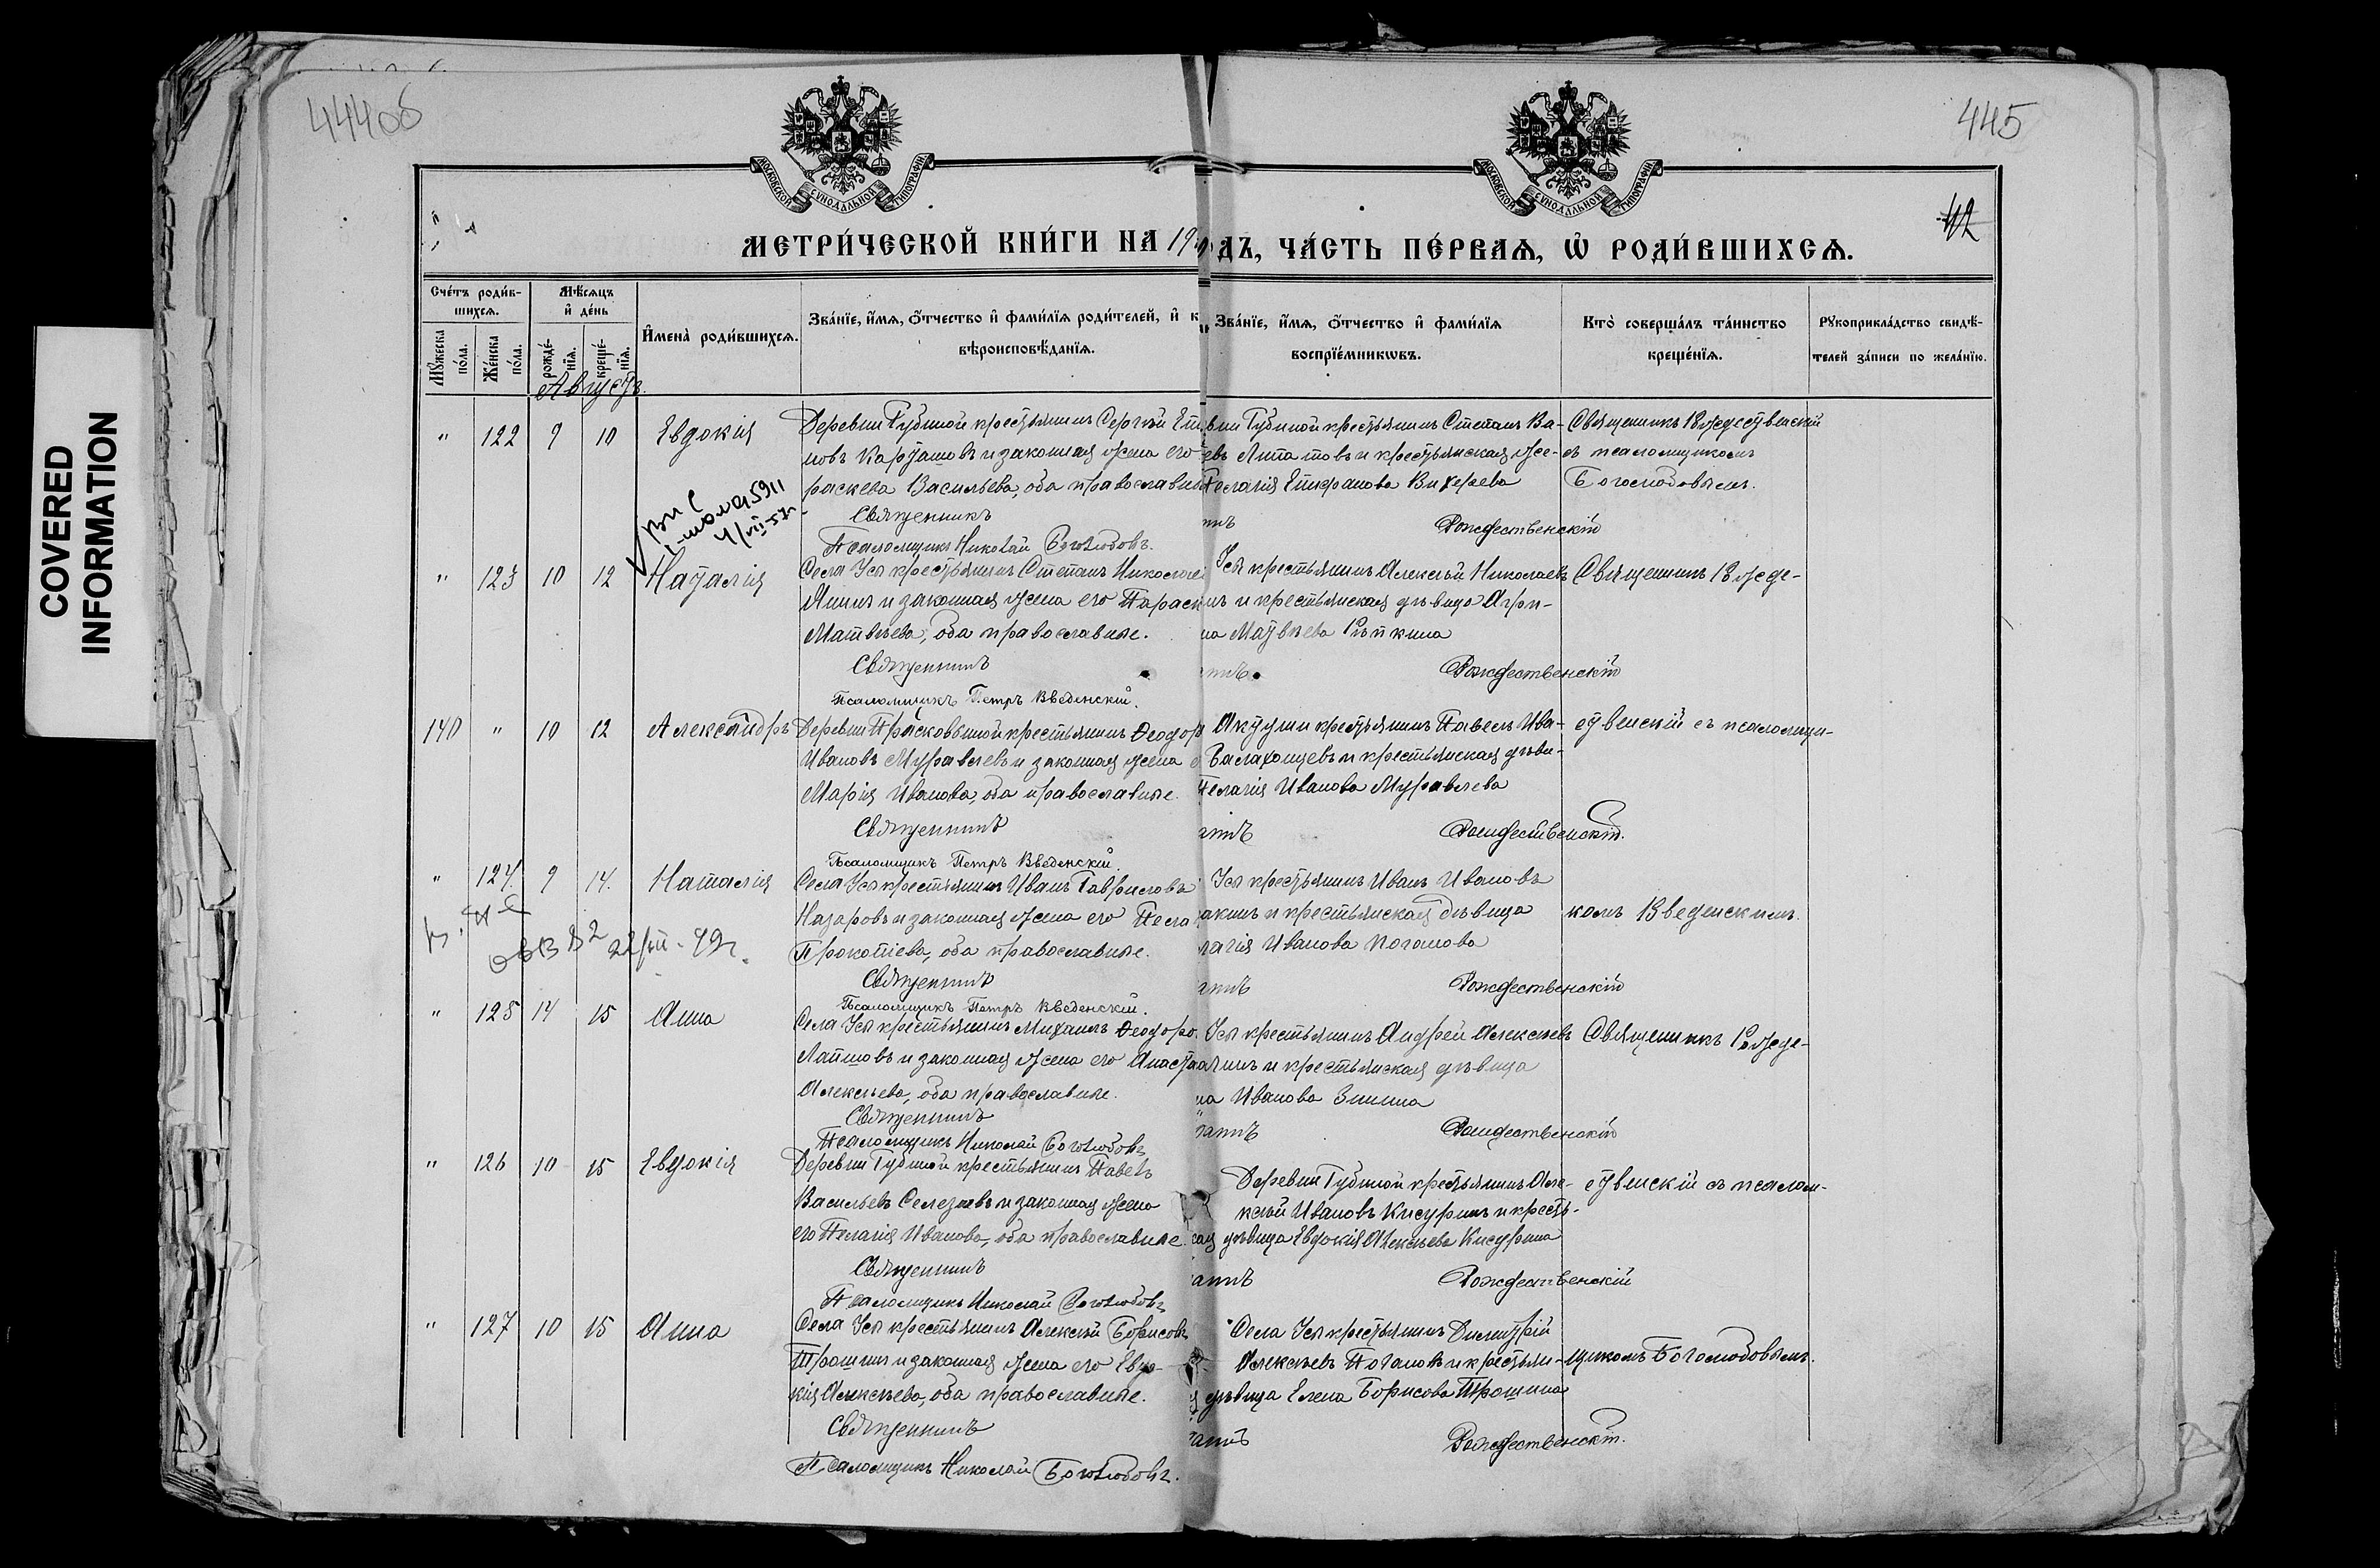 COVERED
INFORMATION
444об
445
МОСКОВСКОЙ СѴНОДАЛЬНОЙ ТИПОГРАФІИ
МОСКОВСКОЙ СѴНОДАЛЬНОЙ ТИПОГРАФІИ
МЕТРИ́ЧЕСКОЙ КНИ́ГИ НА 19
ДЪ, ЧА́СТЬ ПЕ́РВАѦ, Ѡ҆ РОДИ́ВШИХСѦ.
Сче́тъ роди́в-
шихсѧ.
Мꙋжеска
по́ла.
Же́нска
по́ла.
Мѣ́сѧцъ
и҆ де́нь
рожде́-
нїѧ.
креще́-
нїѧ.
И҆мена̀ роди́вшихсѧ.
Зва́нїе, и҆́мѧ, ѻ҆́тчество и҆ фами́лїѧ роди́телей, и҆ к
вѣроисповѣ́данїѧ.
Зва́нїе, и҆́мѧ, ѻ҆́тчество и҆ фами́лїѧ
воспрїе́мникѡвъ.
Кто̀ соверша́лъ та́инство
креще́нїѧ.
Рꙋкоприкла́дство свидѣ́-
телей за́писи по жела́нїю.
Августъ.
" 122 9 10 Евдокія
Деревни Губиной крестьянинъ Сергѣй
новъ Карташовъ и законная жена его
раскева Васильева, оба православн
Священникъ
Псаломщикъ Николай Боголюбовъ.
вни Губиной крестьянинъ Степанъ Ва-
евъ Липатовъ и крестьянская же-
Пелагія Епифанова Вихрева
Рождественскій
Священникъ Рождественскій
съ псаломщикомъ
Боголюбовымъ.
" 123 10 12 Наталія
Села Усы крестьянинъ Степанъ Николаев
Яшинъ и законная жена его Параск
Матвѣева, оба православные.
Священникъ
Псаломщикъ Петръ Введенскій.
Усы крестьянинъ Алексѣй Николаевъ
нъ и крестьянская дѣвица Агри-
на Матвѣева Рѣпкина
Рождественскій
Священникъ Рожде-
140 " 10 12 Александръ
Деревни Прасковьиной крестьянинъ Ѳеодор
Ивановъ Муравлевъ и законная жена е
Марія Иванова, оба православные.
Священникъ
Псаломщикъ Петръ Введенскій.
крестьянинъ Павелъ Ива-
Балахонцевъ и крестьянская дѣви-
Пелагія Иванова Муравлева
Рождественскій.
ственскій съ псаломщи-
" 124. 9 14. Наталія
Села Усы крестьянинъ Иванъ Гавриловъ
Назаровъ и законная жена его Пела
Прокопіева, оба православные.
Священникъ
Псаломщикъ Петръ Введенскій.
Усы крестьянинъ Иванъ Ивановъ
акинъ и крестьянская дѣвица
лагія Иванова Потапова
Рождественскій
комъ Введенскимъ.
" 125 14 15 Анна
Села Усы крестьянинъ Михаилъ Ѳеодоро
Лапшовъ и законная жена его Анаста
Алексѣева, оба православные.
Священникъ
Псаломщикъ Николай Боголюбовъ
Усы крестьянинъ Андрей Алексѣевъ
инъ и крестьянская дѣвица
на Иванова Зимина
Рождественскій
Священникъ Рожде-
" 126 10 15 Евдокія
Деревни Губиной крестьянинъ Павелъ
Васильевъ Селезневъ и законная жена
его Пелагія Иванова, оба православные.
Священникъ
Псаломщикъ Николай Боголюбовъ
Деревни Губиной крестьянинъ Але-
ксѣй Ивановъ Кисуринъ и кресть-
ская дѣвица Евдокія Алексѣева Кисурина
Рождественскій
ственскій съ псалом-
" 127 10 15 Анна
Села Усы крестьянинъ Алексѣй Борисовъ
Трошинъ и законная жена его Евдо-
кія Алексѣева, оба православные.
Священникъ
Псаломщикъ Николай Боголюбовъ.
Села Усы крестьянинъ Димитрій
Алексѣевъ Потаповъ и крестьян-
дѣвица Елена Борисова Трошина
Рождественскій.
щикомъ Боголюбовымъ.